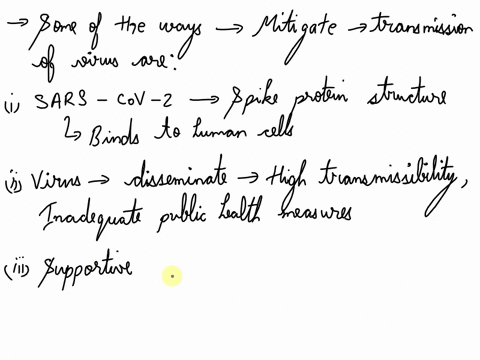 → Some of the ways → Mitigate → transmission
of virus are:
(i) SARS - CoV-2 → Spike protein structure
↳ Binds to human cells
(ii) Virus → disseminate → High transmissibility,
Inadequate public health measures
(iii) Supportive